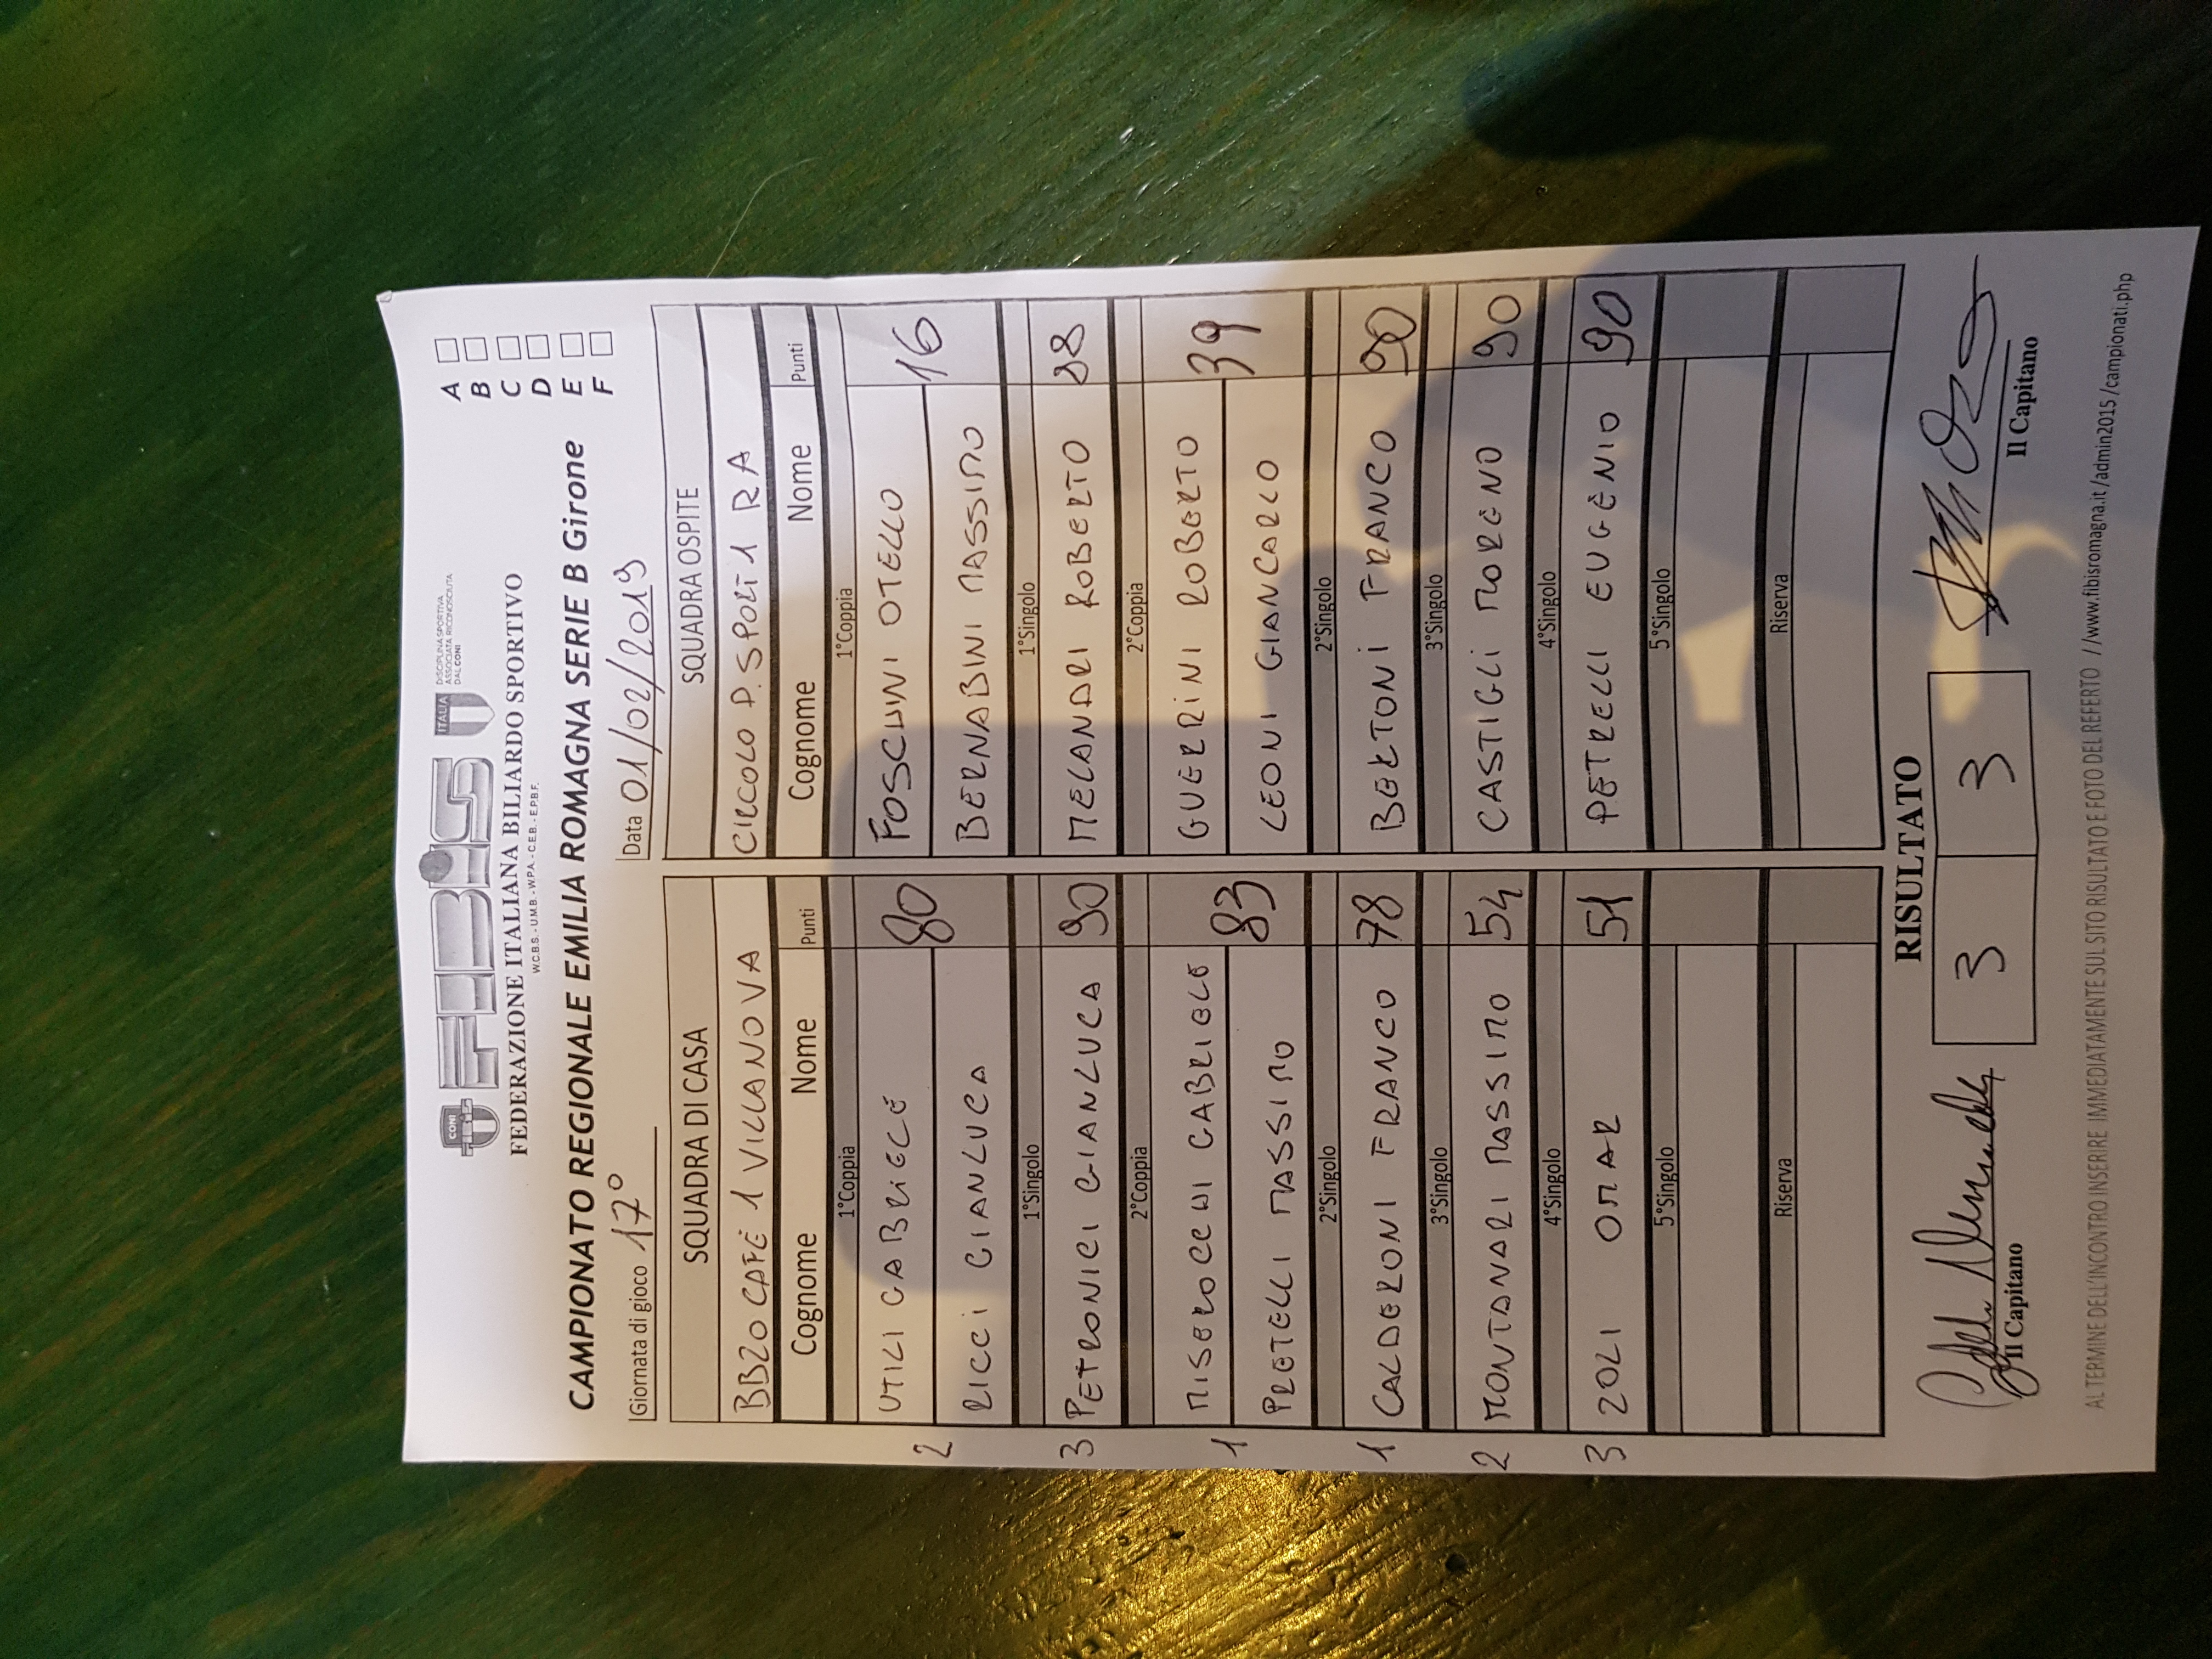 CONI FIBiS ITALIA DISCIPLINA SPORTIVA ASSOCIATA RICONOSCIUTA DAL CONI
FEDERAZIONE ITALIANA BILIARDO SPORTIVO
W.C.B.S. - U.M.B. - W.P.A. - C.E.B. - E.P.B.F.
A
B
C
D
E
F
CAMPIONATO REGIONALE EMILIA ROMAGNA SERIE B Girone
Giornata di gioco 17° Data 01/02/2019
SQUADRA DI CASA SQUADRA OSPITE
BB20 CAFÈ 1 VILLANOVA CIRCOLO P. SPORT 1 RA
Cognome Nome Punti Cognome Nome Punti
1°Coppia 1°Coppia
UTILI GABRIELE 80 FOSCHINI OTELLO 16
2 RICCI GIANLUCA BERNABINI MASSIMO
1°Singolo 1°Singolo
3 PETRONICI GIANLUCA 90 MELANDRI ROBERTO 88
2°Coppia 2°Coppia
MISEROCCHI GABRIELE 83 GUERRINI ROBERTO 39
1 PRETELLI MASSIMO LEONI GIANCARLO
2°Singolo 2°Singolo
1 CALDERONI FRANCO 78 BERTONI FRANCO 90
3°Singolo 3°Singolo
2 MONTANARI MASSIMO 54 CASTIGLI MORENO 90
4°Singolo 4°Singolo
3 ZOLI OMAR 51 PETRELLI EUGENIO 90
5°Singolo 5°Singolo
Riserva Riserva
RISULTATO
3 3
Il Capitano Il Capitano
AL TERMINE DELL'INCONTRO INSERIRE IMMEDIATAMENTE SUL SITO RISULTATO E FOTO DEL REFERTO //www.fibisromagna.it/admin2015/campionati.php